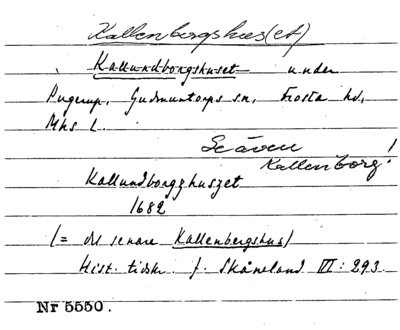 Kallenbergshus(et)
Kallundborgshuset under
Pugerup, Gudmuntorps sn, Frosta hd,
Mhs L.
Se även
Kallenborg!
Kallundborgzhuszet
1682
(= det senare Kallenbergshus)
Hist. tidskr. f. Skåneland III: 293.
Nr 5550.